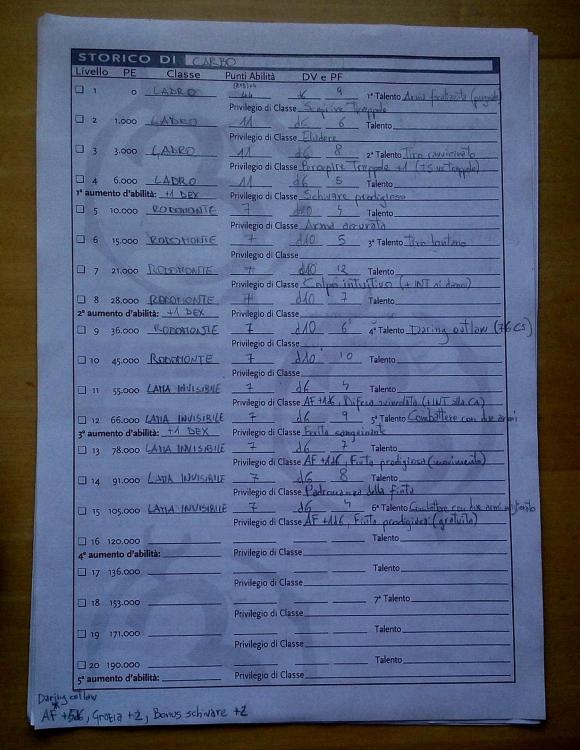 STORICO DI CARBO
Livello PE Classe Punti Abilità DV e PF
1 0 LADRO 44 d6 9 1° Talento Arma focalizzata
Privilegio di Classe Scoprire Trappole
2 1.000 LADRO 11 d6 6 Talento
Privilegio di Classe Eludere
3 3.000 LADRO 11 d6 8 2° Talento Tiro ravvicinato
Privilegio di Classe Percepire Trappole +1
4 6.000 LADRO 11 d6 5 Talento
1° aumento d'abilità: +1 DEX Privilegio di Classe Schivare prodigioso
5 10.000 RODOMONTE 7 d10 4 Talento
Privilegio di Classe Arma accurata
6 15.000 RODOMONTE 7 d10 5 3° Talento Tiro lontano
Privilegio di Classe
7 21.000 RODOMONTE 7 d10 12 Talento
Privilegio di Classe Colpo intuitivo (+ INT ai danni)
8 28.000 RODOMONTE 7 d10 7 Talento
2° aumento d'abilità: +1 DEX Privilegio di Classe
9 36.000 RODOMONTE 7 d10 6 4° Talento Daring outlaw
Privilegio di Classe
10 45.000 RODOMONTE 7 d10 10 Talento
Privilegio di Classe
11 55.000 LAMA INVISIBILE 7 d6 4 Talento
Privilegio di Classe AF +1d6, Difesa (+INT alla CA)
12 66.000 LAMA INVISIBILE 7 d6 9 5° Talento Combattere con due armi
3° aumento d'abilità: +1 DEX Privilegio di Classe Ferita sanguinante
13 78.000 LAMA INVISIBILE 7 d6 7 Talento
Privilegio di Classe AF +1d6, Finta prodigiosa (movimento)
14 91.000 LAMA INVISIBILE 7 d6 8 Talento
Privilegio di Classe Padronanza della finta
15 105.000 LAMA INVISIBILE 7 d6 4 6° Talento Combattere con due armi
Privilegio di Classe AF +1d6, Finta prodigiosa (gratuita)
16 120.000 Talento
4° aumento d'abilità: Privilegio di Classe
17 136.000 Talento
Privilegio di Classe
18 153.000 7° Talento
Privilegio di Classe
19 171.000 Talento
Privilegio di Classe
20 190.000 Talento
5° aumento d'abilità: Privilegio di Classe
Daring outlaw
AF +5d6, Grazia +2, Bonus schivare +2